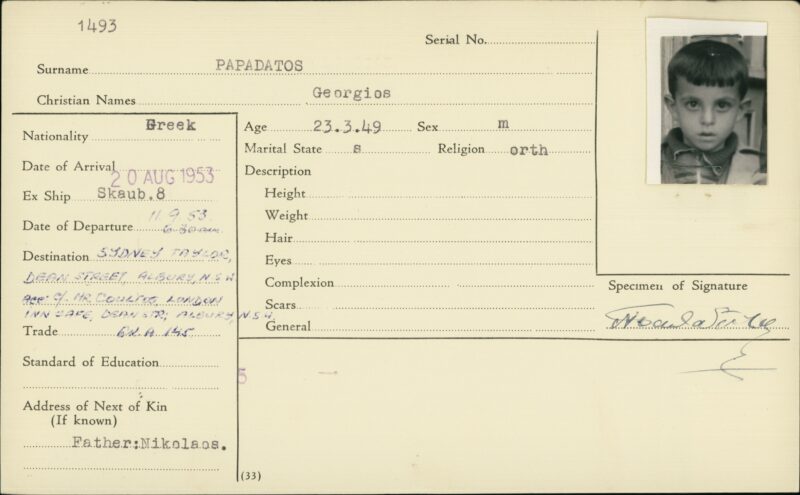 1493
Serial No.
Surname PAPADATOS
Christian Names Georgios
Nationality Greek
Date of Arrival 20 AUG 1953
Ex Ship Skaub.8
Date of Departure 11.9.53 6-30am
Destination SYDNEY TAYLOR,
DEAN STREET, ALBURY, N.S.W
c/. MR. LONDON
INN CAFE, DEAN STR, ALBURY, N.S.W.
Trade
Standard of Education
Address of Next of Kin
(If known)
Father:Nikolaos.
Age 23.3.49 Sex m
Marital State s Religion orth
Description
Height
Weight
Hair
Eyes
Complexion
Scars
General
(33)
Specimen of Signature